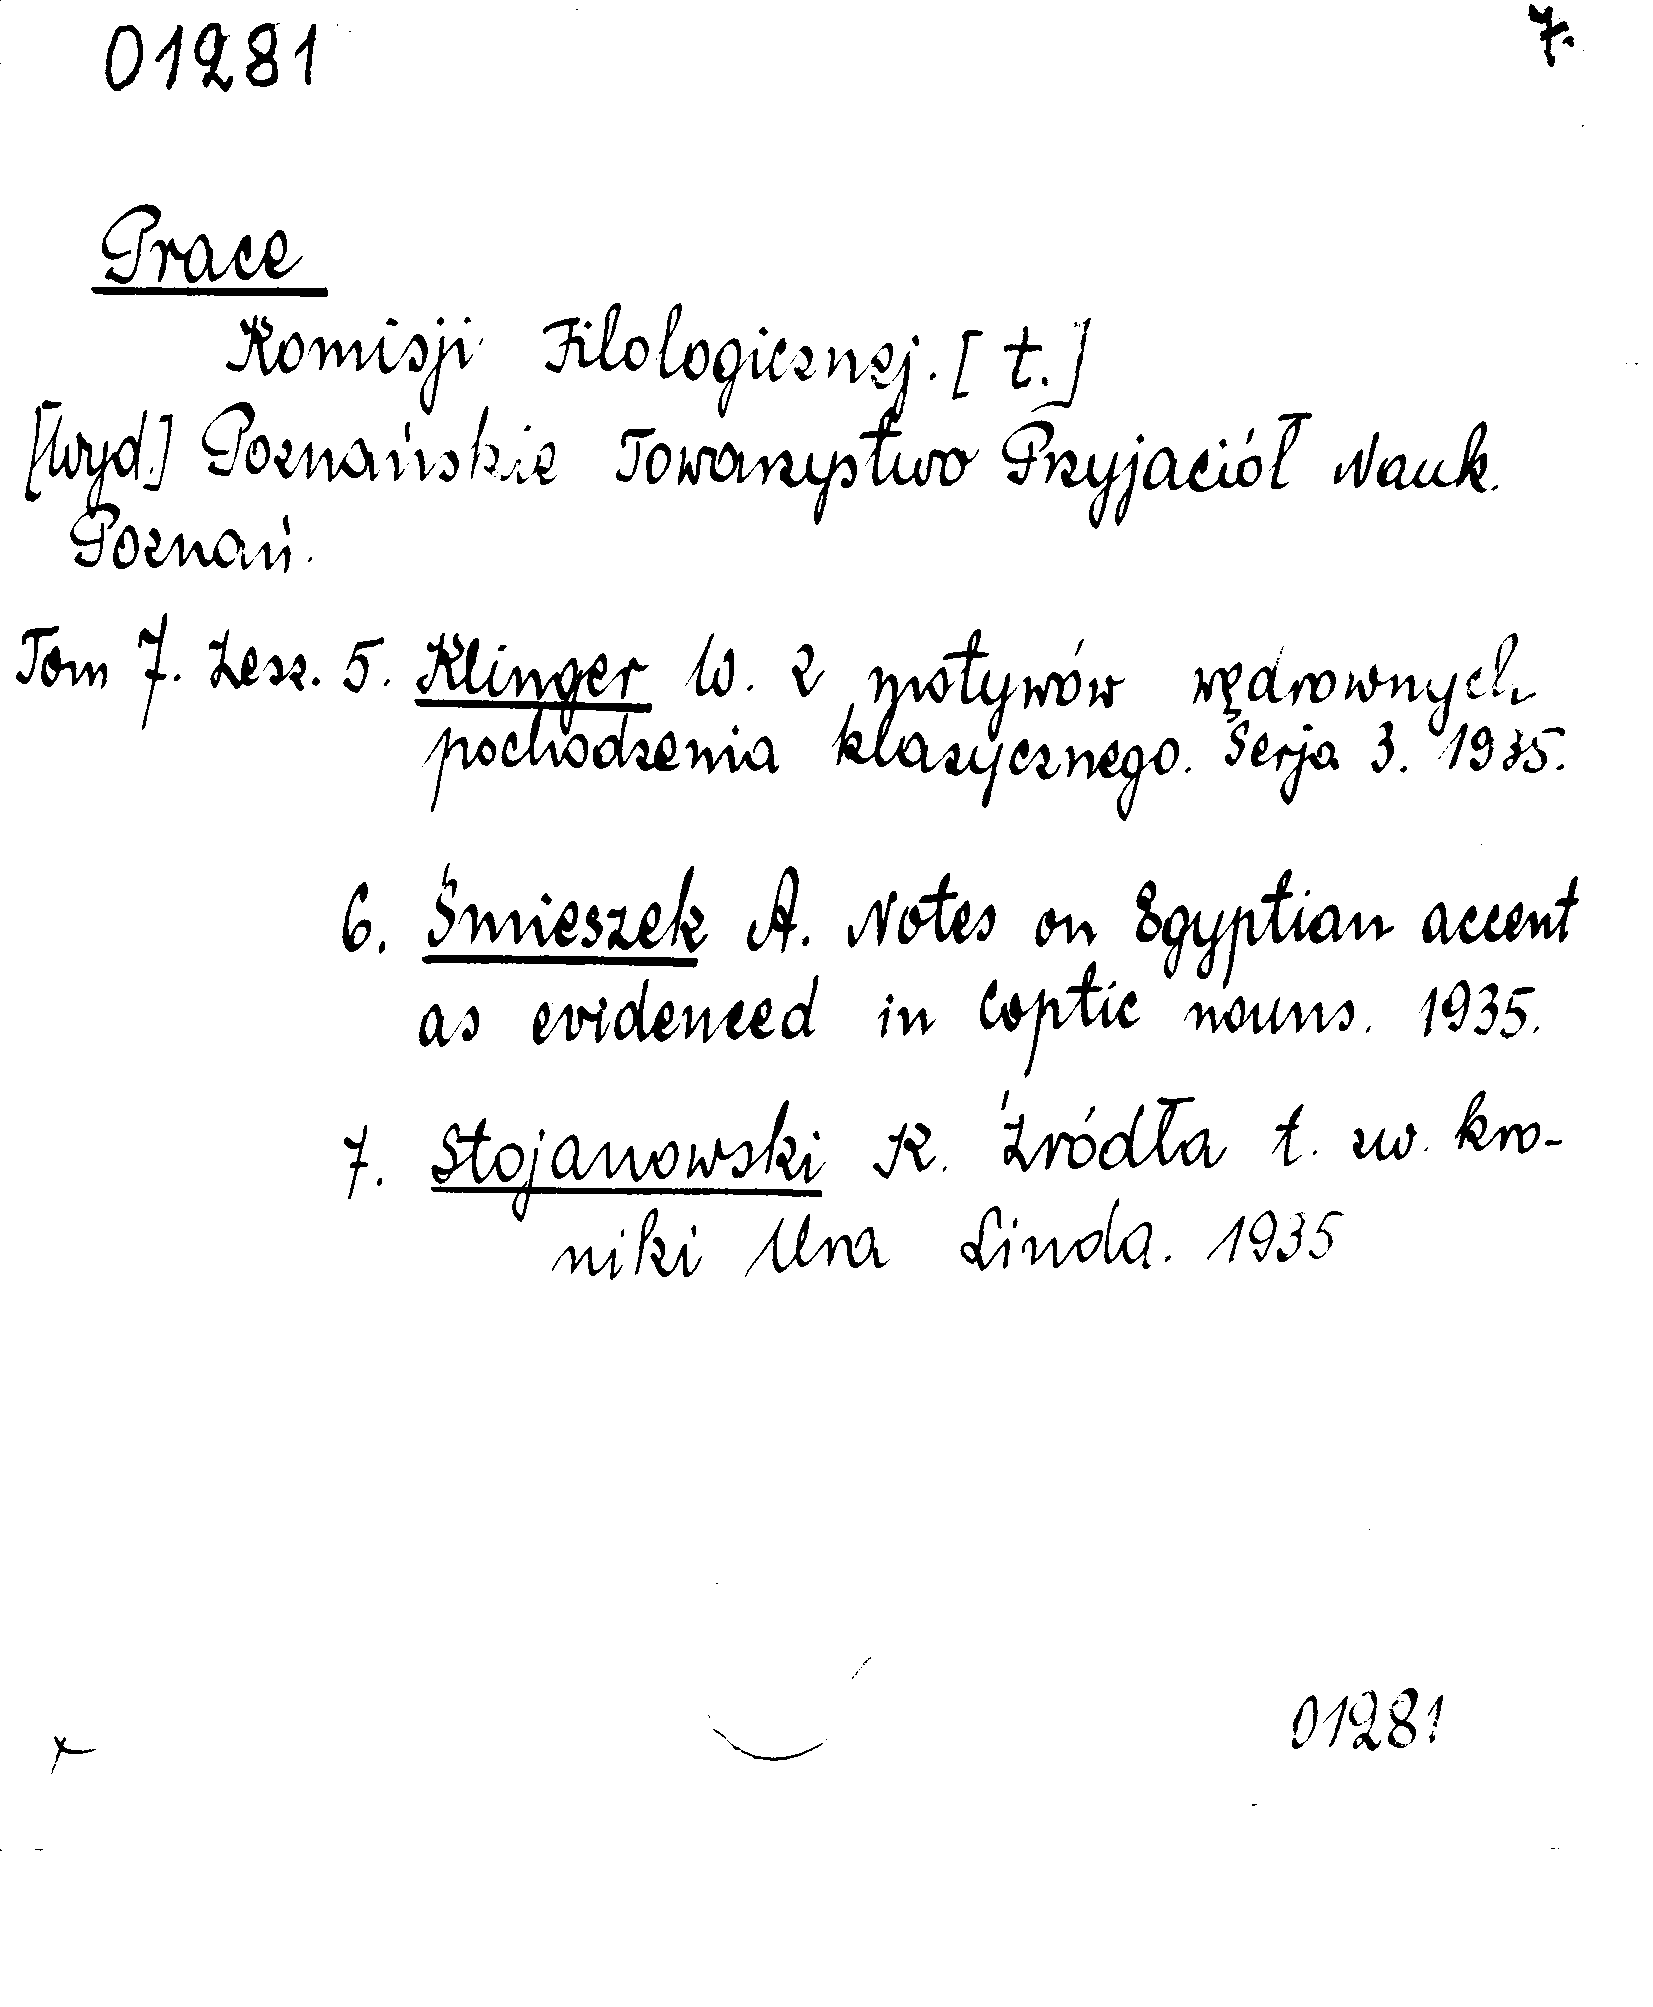 01281
7.
Prace
Komisji Filologicznej. [t.]
[Wyd.] Poznańskie Towarzystwo Przyjaciół Nauk.
Poznań.
Tom 7. Zesz. 5. Klinger W. Z motywów wędrownych
pochodzenia klasycznego. Serja 3. 1935.
6. Śmieszek A. Notes on Egyptian accent
as evidenced in Coptic nouns. 1935.
7. Stojanowski K. Źródła t. zw. kro-
niki Ura Linda. 1935
01281